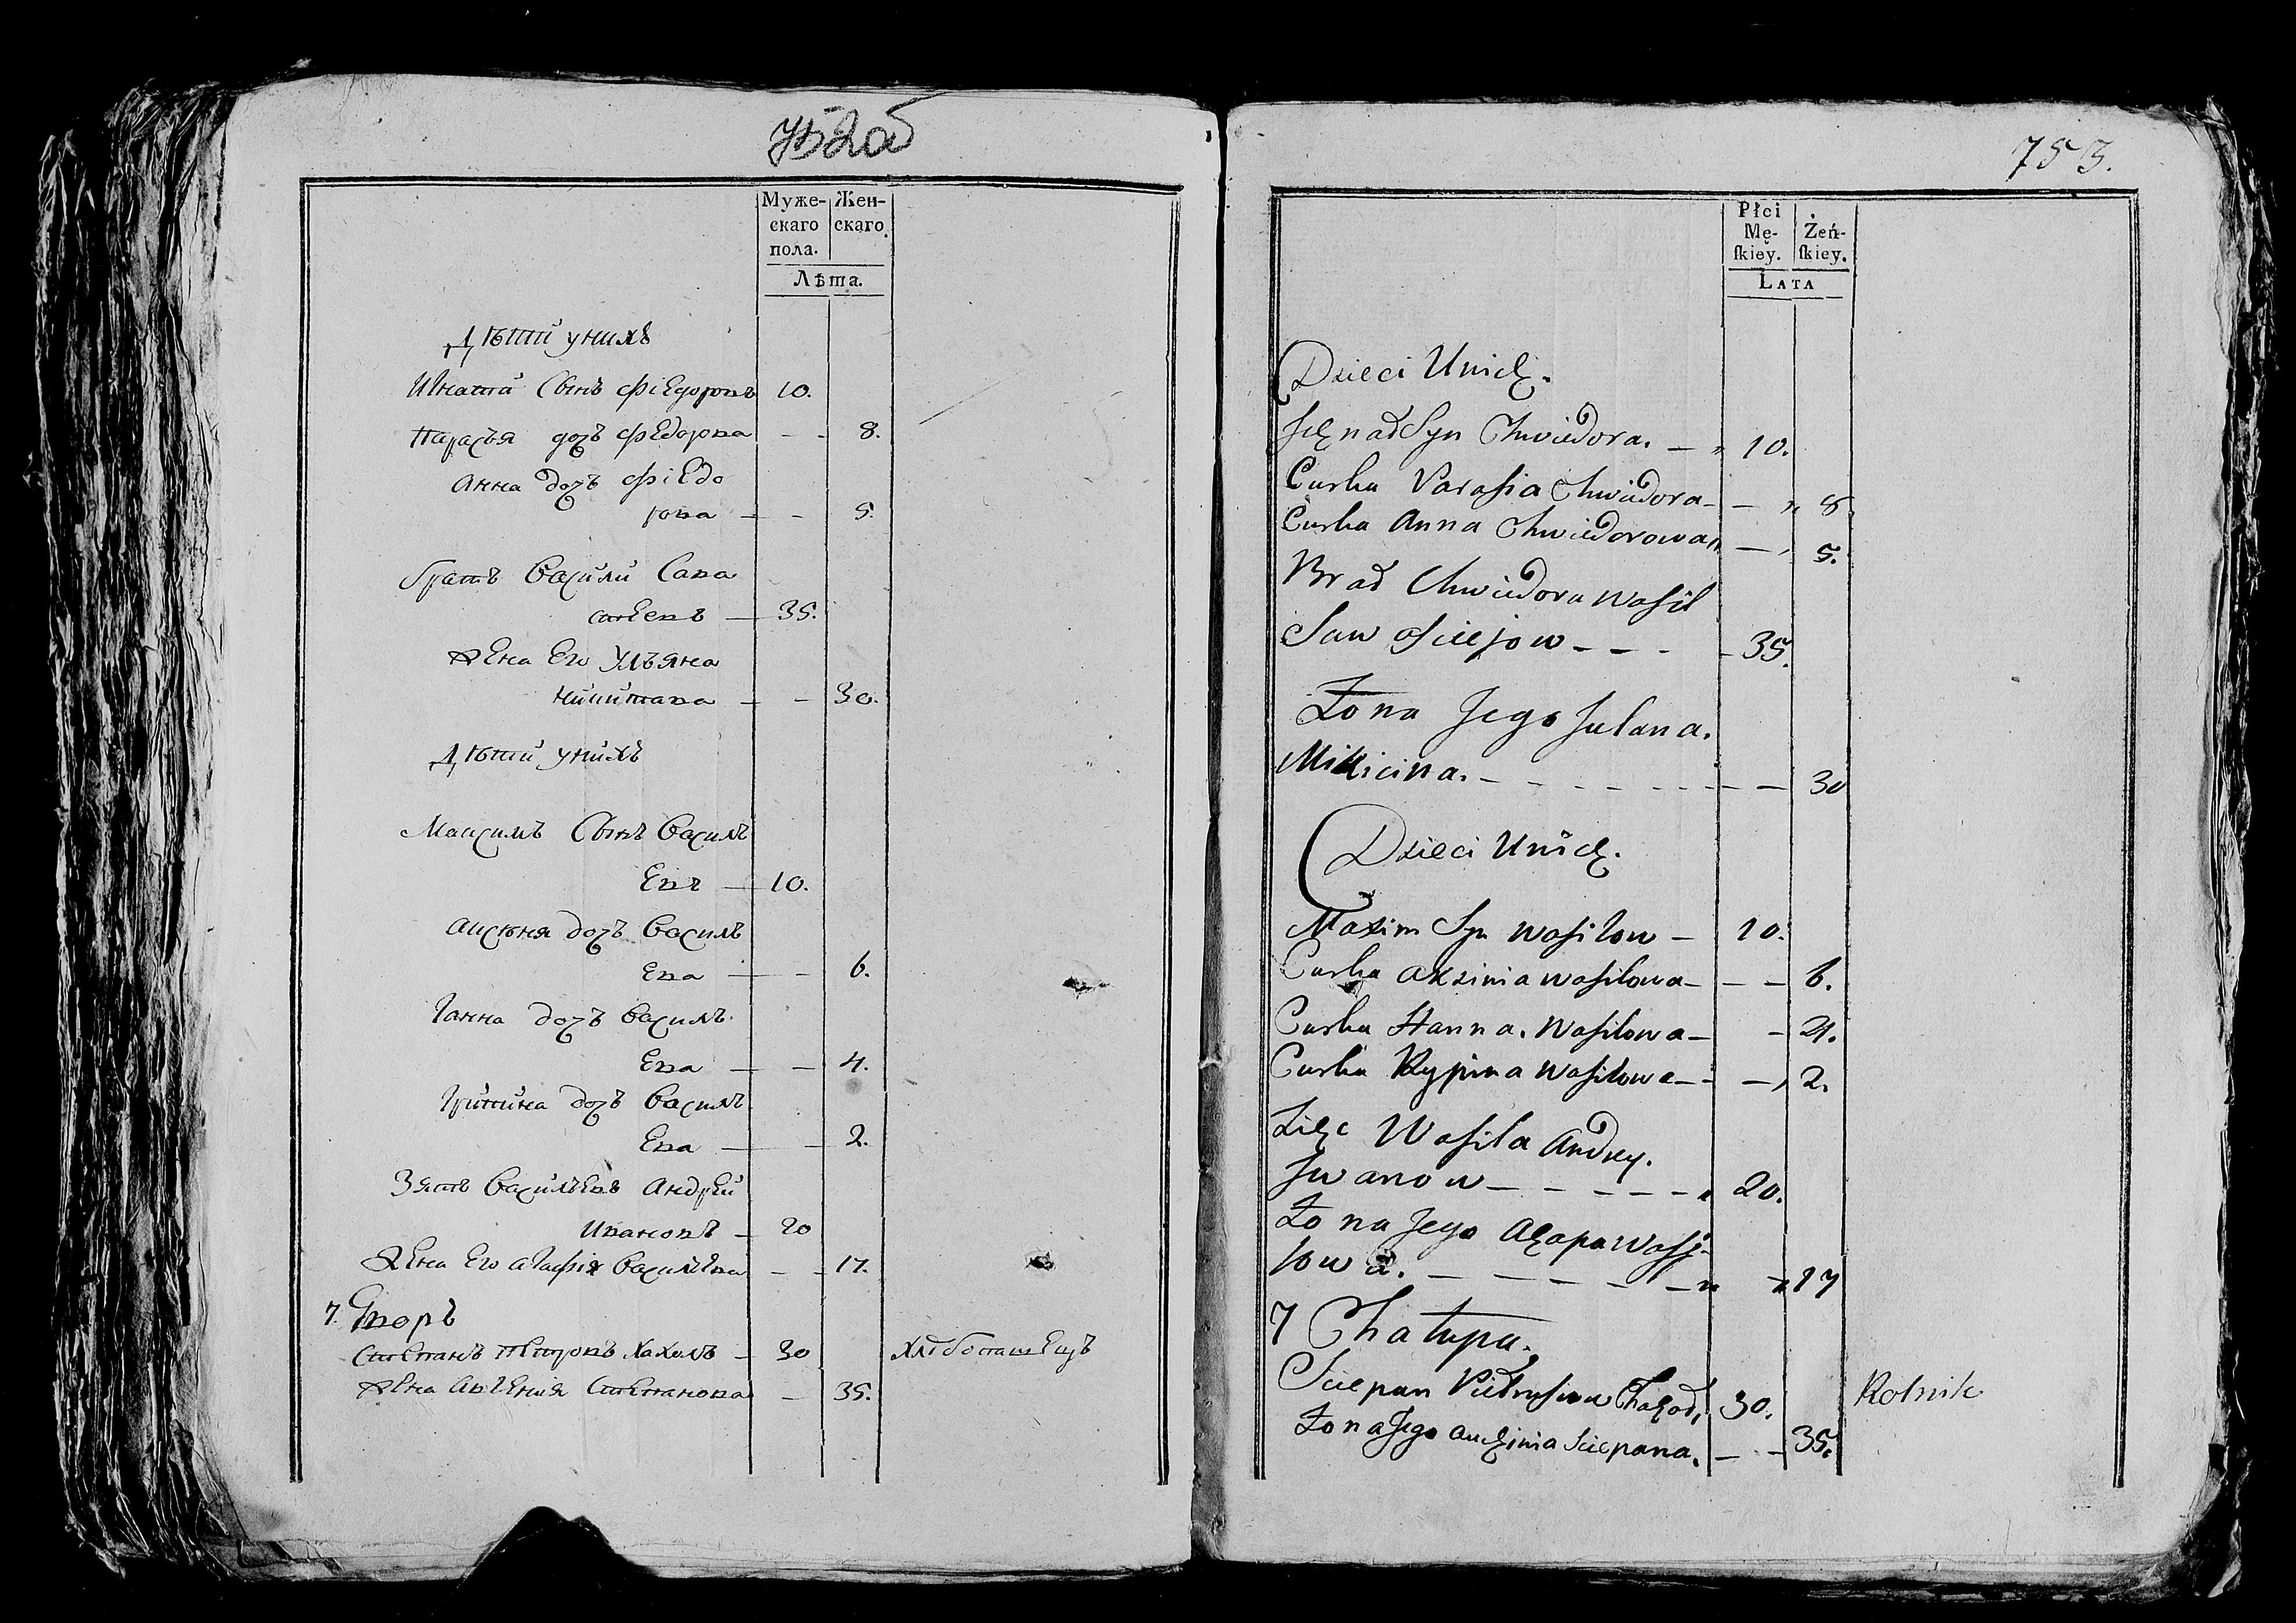 752об
Муже-
скаго
пола.
Жен-
скаго.
Лѣта.
Дѣти у нихъ
Игнатъ Сынъ Фіедоровъ 10.
Парасья дочъ Федорова - - 8.
Анна дочъ Фіедо
рова - - 5.
Братъ Васили Сава
стѣевъ - 35.
Жена Его Ульяна
Никитава - - 30.
Дѣти у нихъ
Максимъ Сынъ Василь
Евъ - 10.
Аксѣня дочъ Василь
Ева - - 6.
Ганна дочъ Василь
Ева - - 4.
Грипина дочъ Василь
Ева - - 2.
Зять Васильевъ Андрей
Ивановъ - 20
Жена Его Агафія Васильева - - 17.
7. Дворъ
Степанъ Петровъ - 30 Хлѣбопашецъ
Жена Степанова - 35.
753.
Płci
Mę-
ſkiey.
Żeń-
ſkiey.
LATA
Dzieci Unich.
Syn Chwiedora. - " 10.
Curka Parasia Chwiedora - - " 8
Curka Anna Chwiedorowa " - , 5.
Brad Chwiedora Wasil
Sawosciejow - - - - 35.
Żona Jego Julana.
Mikicina. - - - - - - - - 30
Dzieci Unich.
Maxim Syn Wasilow - 10.
Curka Axzinia Wasilowa - - - 6.
Curka Hanna. Wasilowa - - 4.
Curka Rypina Wasilowa - - - , 2.
Zięc Wasila Andrey.
Jwanow - - - - - " 20.
Żona Jego Agapa Wasi-
lowa. - - - - - - " " 17
7 Chałupa.
Sciepan 30. Rolnik
Żona Jego Sciepana. - - 35.